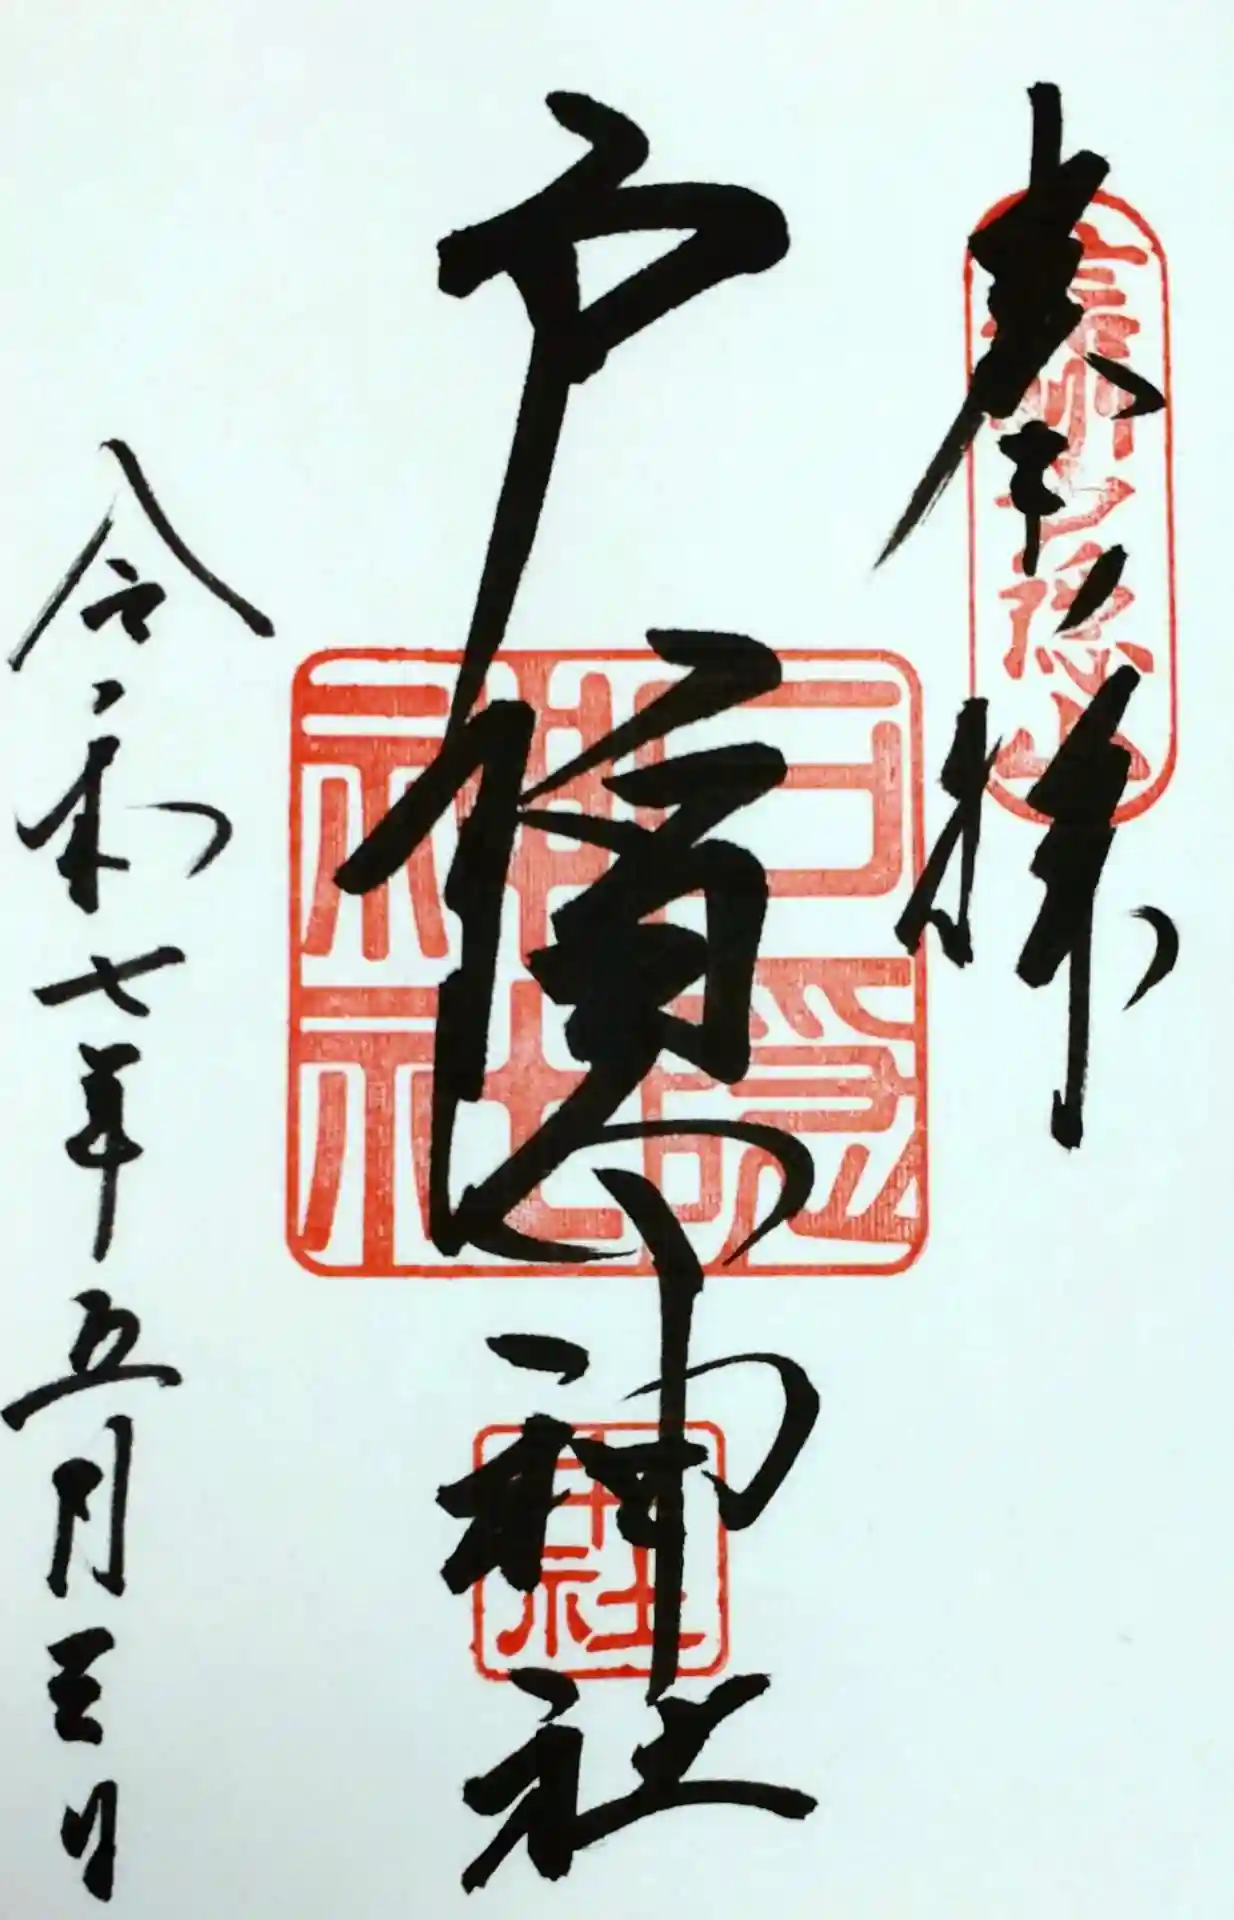 奉拝
信州戸隠山
戸隠神社
戸隠神社
令和七年五月三日